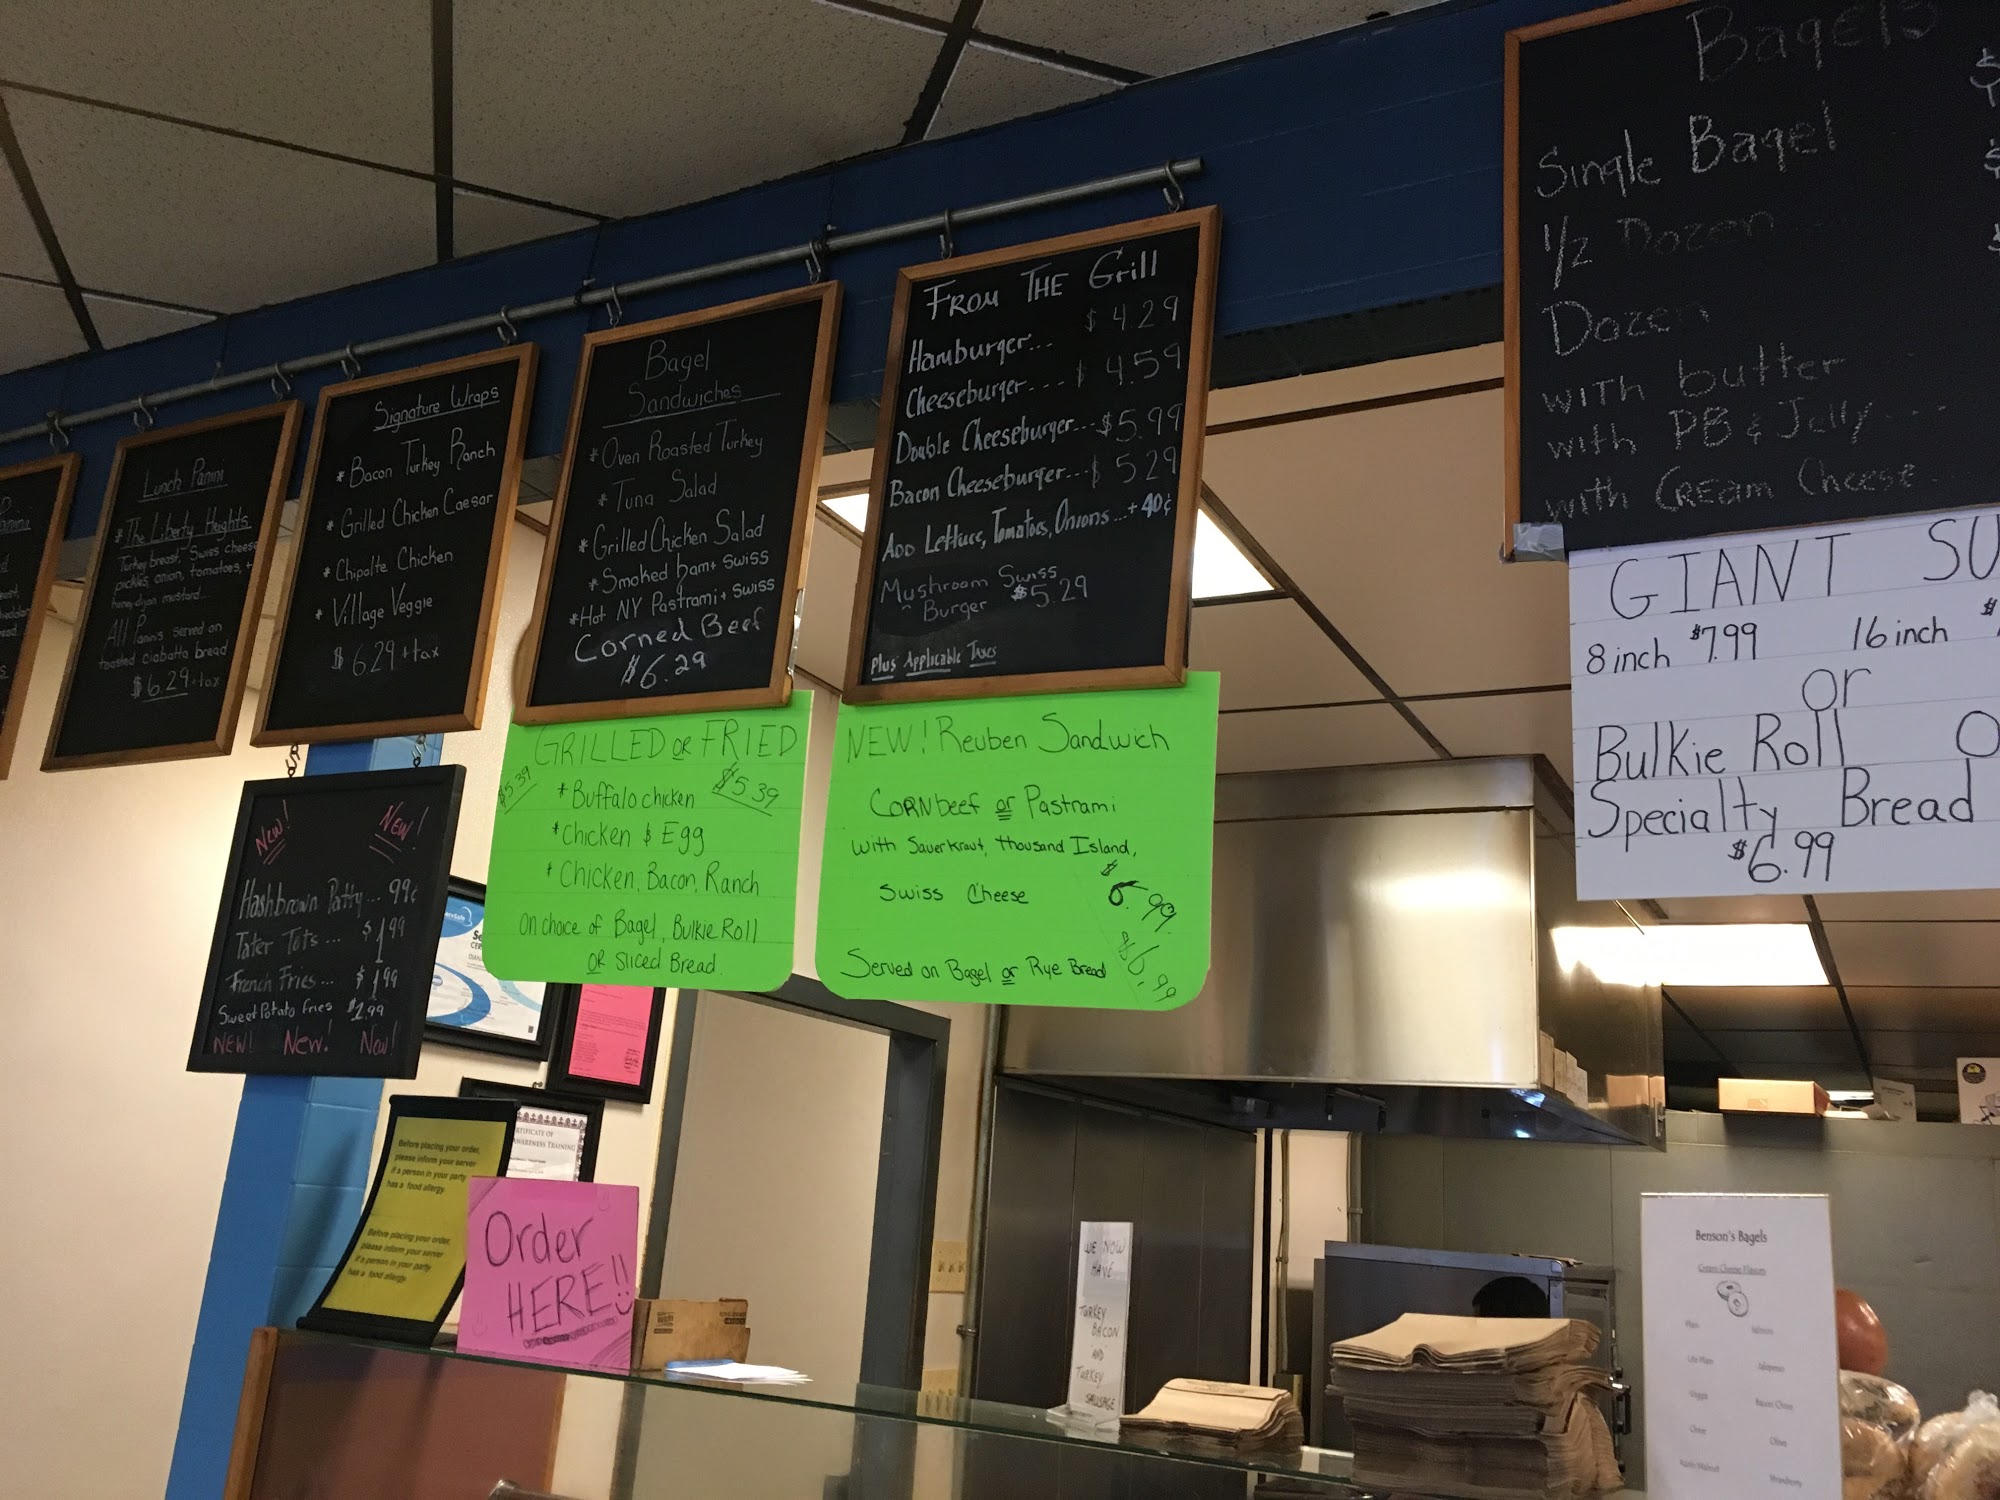 Lunch Panini
* The Liberty Heights
Turkey breast, Swiss cheese
pickles, onion, tomatoes, +
honey dijon mustard...
All Panini's served on
toasted ciabatta bread
$6.29 + tax
Signature Wraps
* Bacon Turkey Ranch
* Grilled Chicken Caesar
* Chipolte Chicken
* Village Veggie
$6.29 + tax
Bagel
Sandwiches
* Oven Roasted Turkey
* Tuna Salad
* Grilled Chicken Salad
* Smoked ham + Swiss
* Hot NY Pastrami + Swiss
Corned Beef
$6.29
From The Grill
Hamburger... $4.29
Cheeseburger.... $4.59
Double Cheeseburger... $5.99
Bacon Cheeseburger... $5.29
Add Lettuce, Tomatoes, Onions...+40¢
Mushroom Swiss
Burger $5.29
Plus Applicable Taxes
Bagels
Single Bagel $
1/2 Dozen... $
Dozen $
with butter
with PB & Jelly....
with Cream Cheese.
GIANT SU
8 inch $7.99 16 inch $
or
Bulkie Roll O
Specialty Bread
$6.99
GRILLED OR FRIED
$5.39 * Buffalo chicken $5.39
* Chicken & Egg
* Chicken, Bacon, Ranch
On choice of Bagel, Bulkie Roll
OR Sliced Bread.
NEW! Reuben Sandwich
CORNbeef or Pastrami
with Sauerkraut, thousand Island,
Swiss Cheese $6.99
$6.99
Served on Bagel or Rye Bread
New! New!
Hashbrown Patty... 99¢
Tater Tots... $1.99
French Fries... $1.99
Sweet Potato Fries $2.99
NEW! New! New!
CERTIFICATE OF
AWARENESS TRAINING
Before placing your order,
please inform your server
if a person in your party
has a food allergy.
Before placing your order,
please inform your server
if a person in your party
has a food allergy.
Order
HERE!!
WE NOW
HAVE
TURKEY
BACON
AND
TURKEY
SAUSAGE
Benson's Bagels
Cream Cheese Flavors
Plain Salmon
Lite Plain Jalapeno
Veggie Bacon Chive
Chive Olive
Raisin Walnut Strawberry